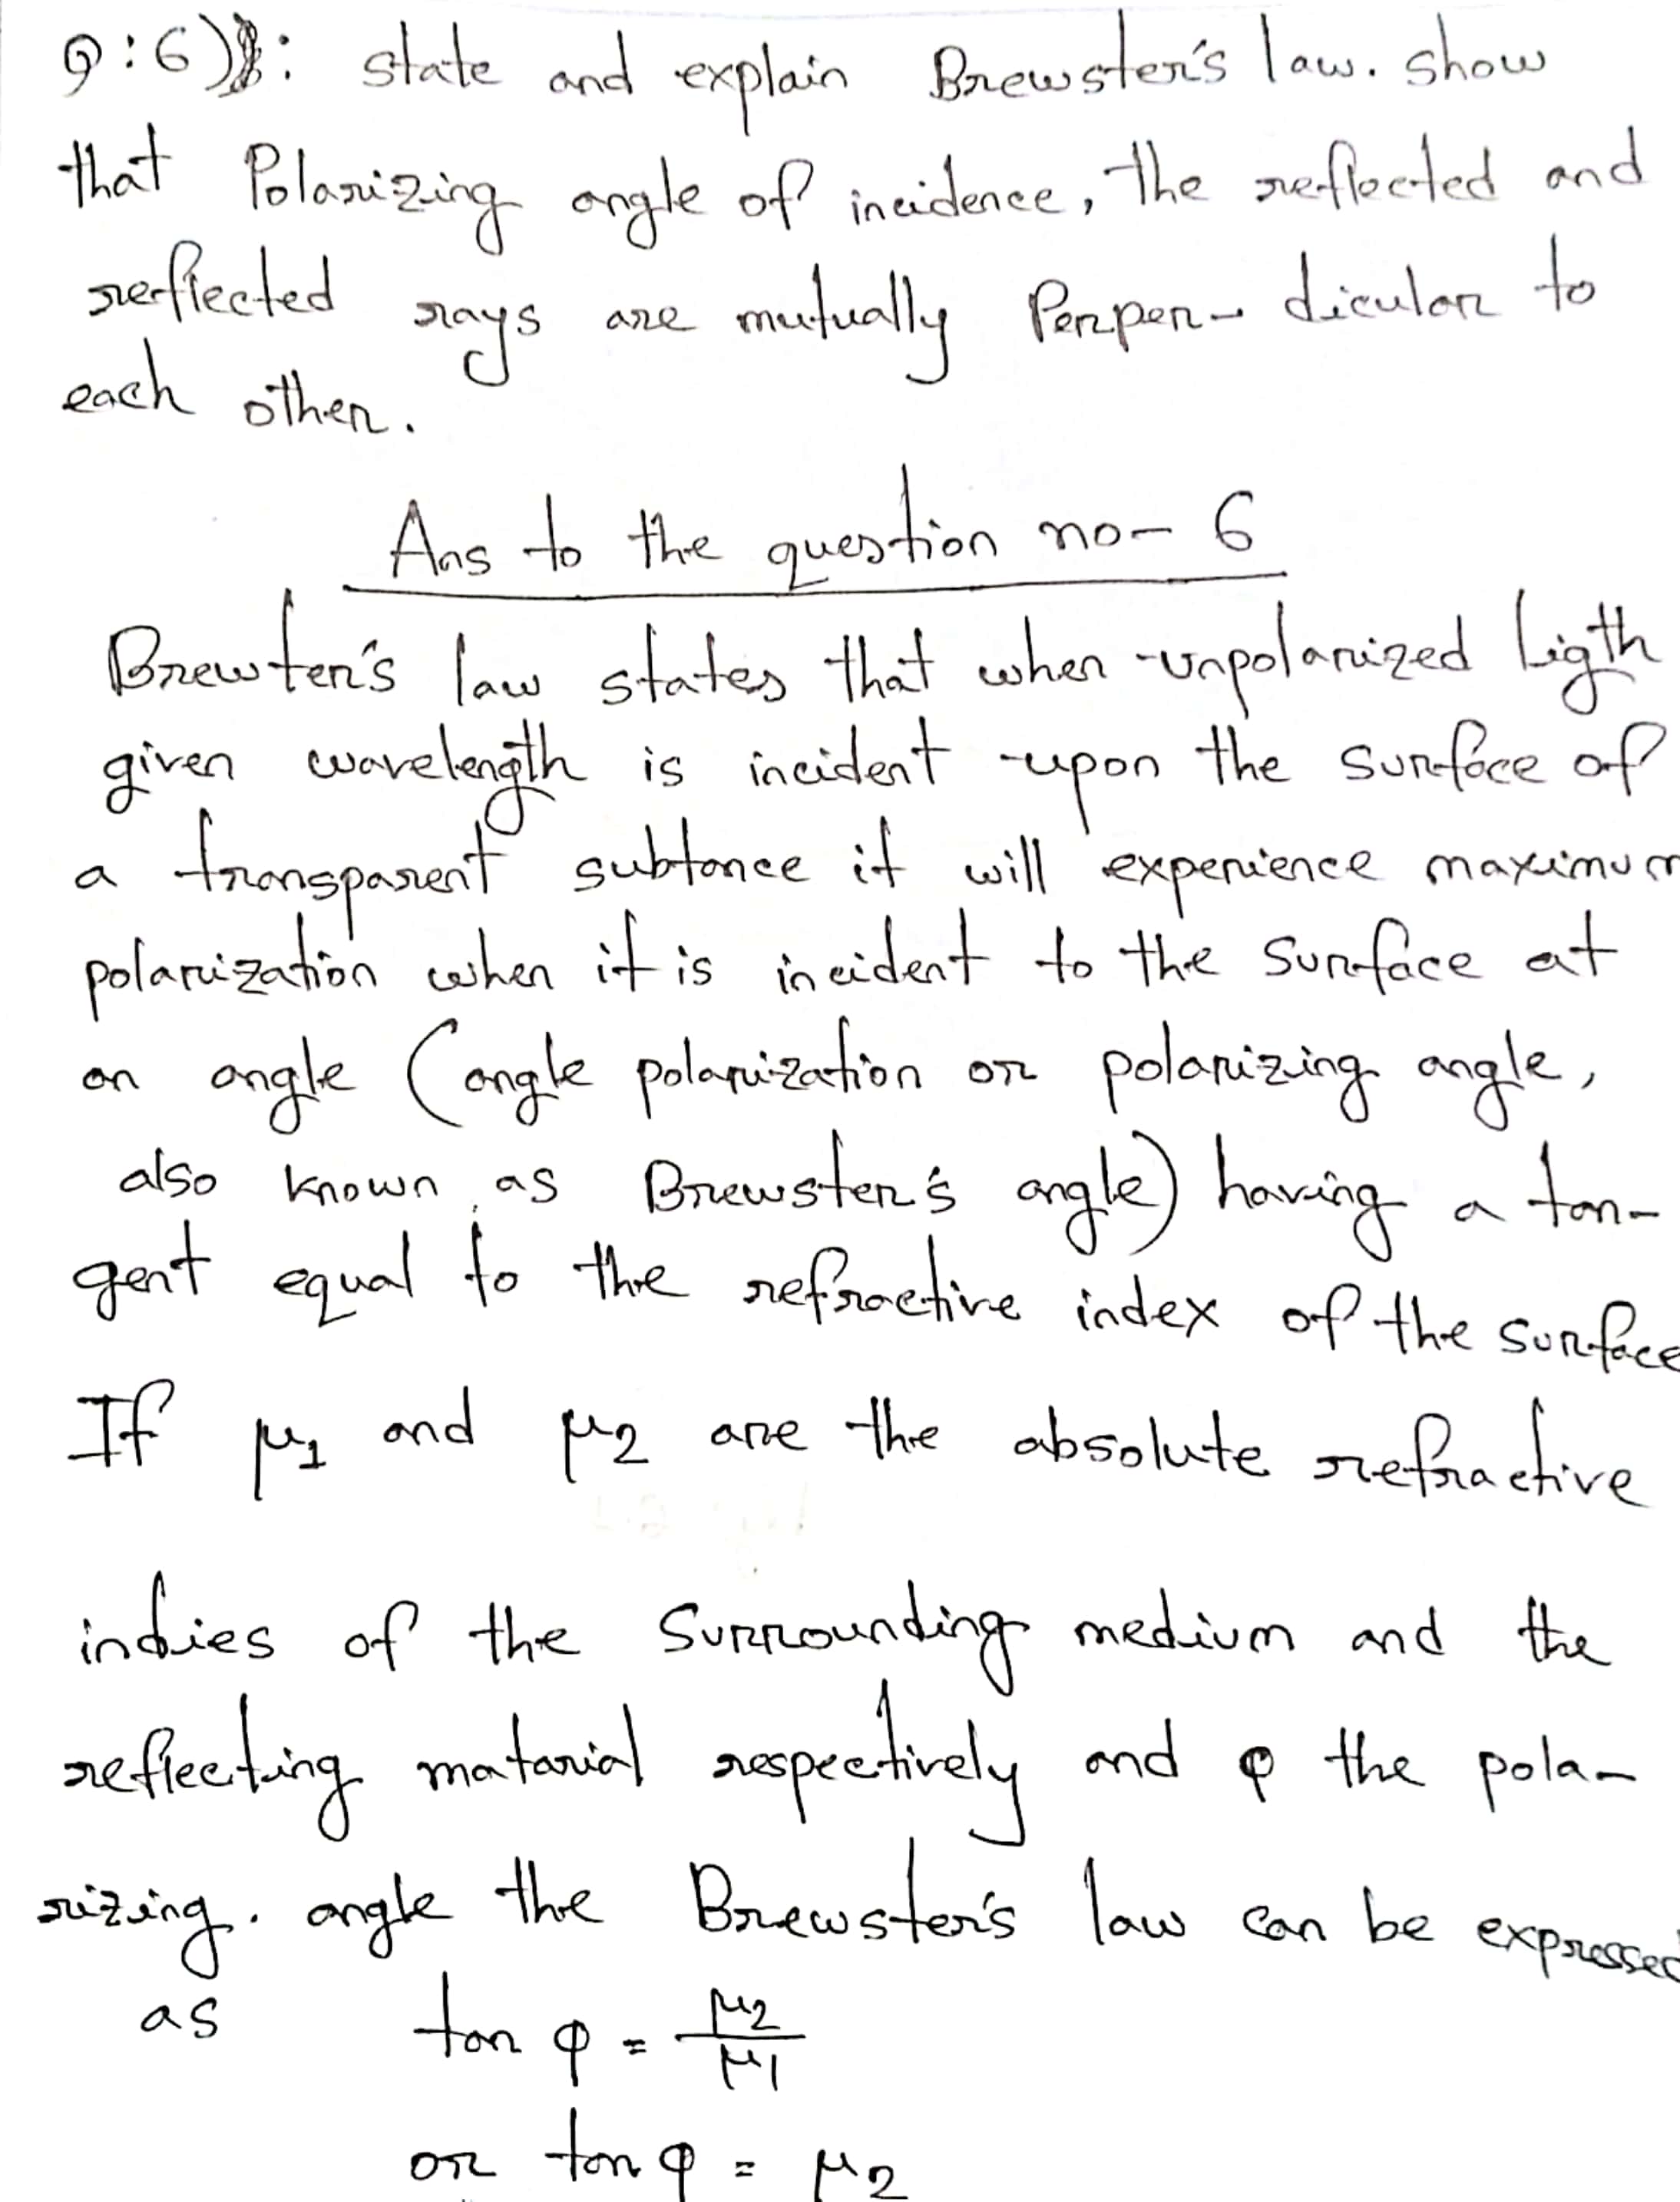 Q:6): state and explain Brewster's law. show
that Polarizing angle of incidence, the reflected and
reflected rays are mutually Perpen- dicular to
each other.
Ans to the question no- 6
Brewter's law states that when unpolarized Ligth
given wavelength is incident upon the surface of
a transparent subtance it will experience maximum
polarization when it is incident to the surface at
an angle (angle polarization or polarizing angle,
also known as Brewster's angle) having a tan-
gent equal to the refractive index of the surface
If μ1 and μ2 are the absolute refractive
indies of the surrounding medium and the
reflecting matarial respectively and φ the pola-
rizing. angle the Brewster's law can be expressed
as tan φ = μ2/μ1
or tan φ = μ2